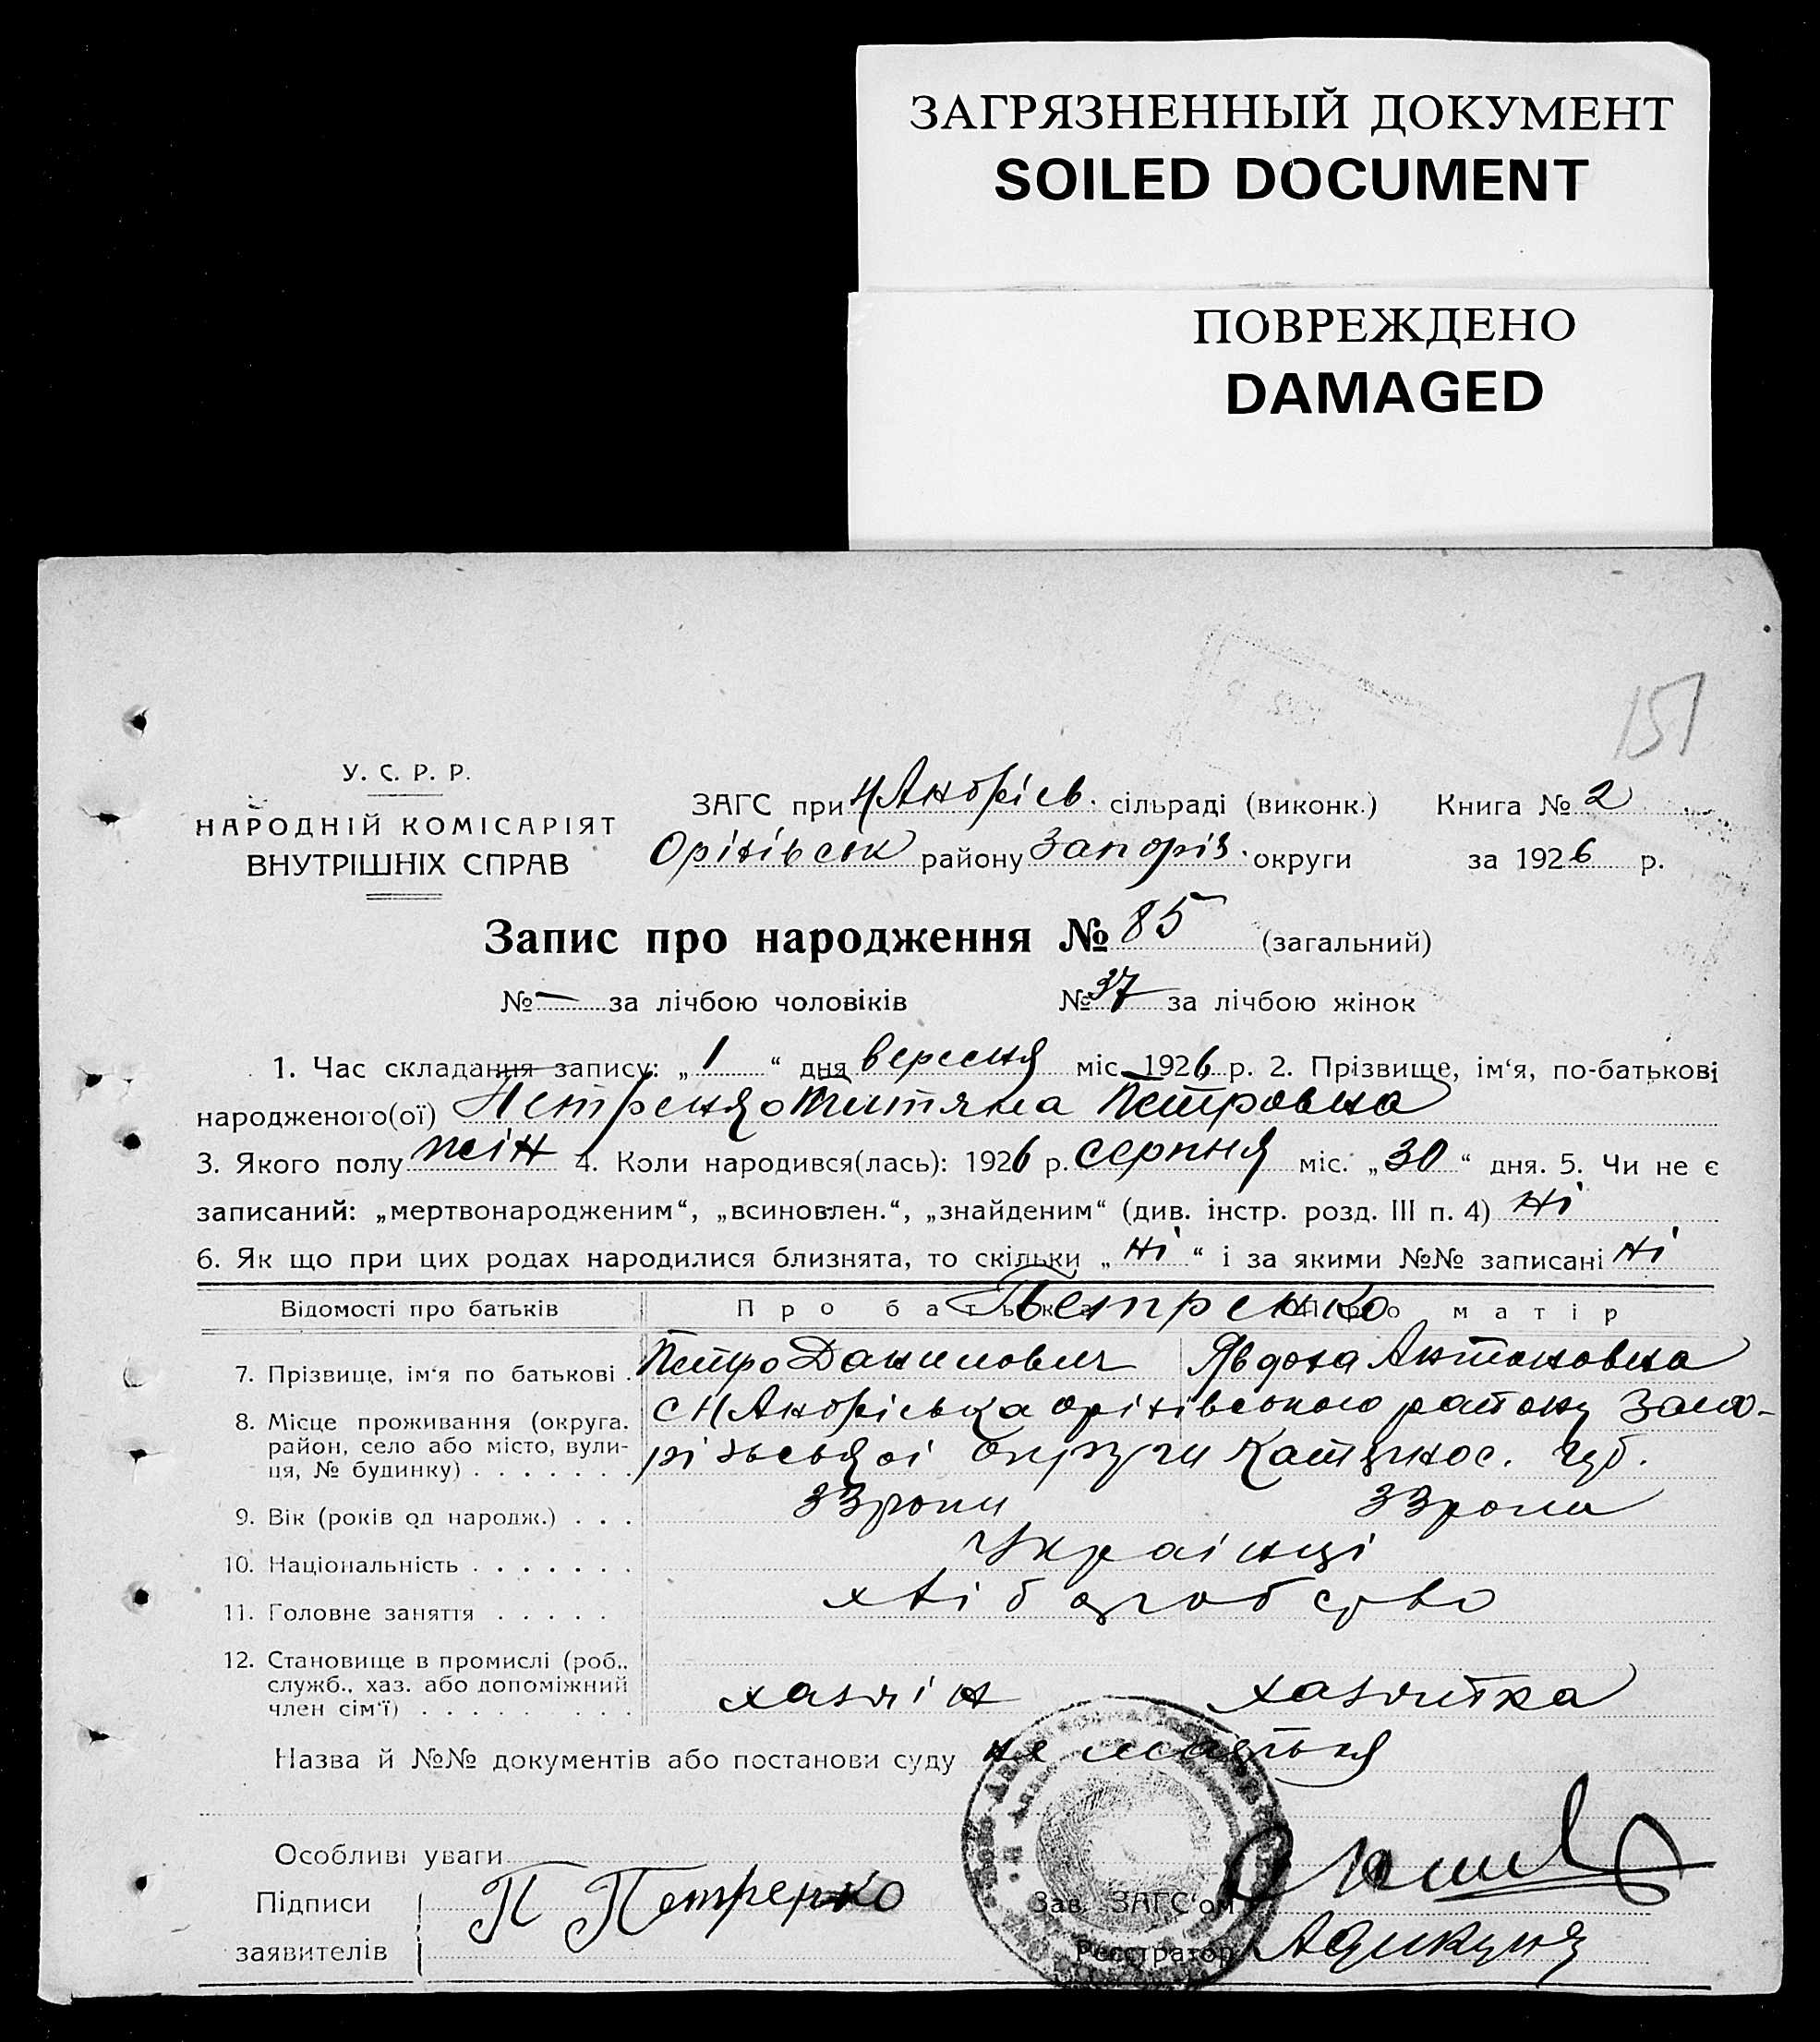 ЗАГРЯЗНЕННЫЙ ДОКУМЕНТ
SOILED DOCUMENT
ПОВРЕЖДЕНО
DAMAGED
151
У. С. Р. Р.
НАРОДНІЙ КОМІСАРІЯТ
ВНУТРІШНІХ СПРАВ
ЗАГС при Н Андріів. сільраді (виконк.) Книга № 2
Оріхівськ району Запоріз. округи за 1926 р.
Запис про народження № 85 (загальний)
№ — за лічбою чоловіків № 37 за лічбою жінок
1. Час складання запису: „ 1 “ дня вересня міс. 1926 р. 2. Прізвище, ім‘я, по-батькові
народженого(ої) Петренко Титяна Петровна
3. Якого полу жін 4. Коли народився(лась): 1926 р. серпня міс. „ 30 “ дня. 5. Чи не є
записаний: „мертвонародженим“, „всиновлен.“, „знайденим“ (див. інстр. розд. III п. 4) Ні
6. Як що при цих родах народилися близнята, то скільки „ Ні “ і за якими №№ записані Ні
Відомості про батьків Про батька Петренко Про матір
7. Прізвище, ім‘я по батькові . Петро Данилович Явдоха Антоновна
8. Місце проживання (округа, район, село або місто, вулиця, № будинку) . . . . . . . с Н Андріівка Оріхівського району Запо-
різськоі округи Катеринос. губ.
9. Вік (років од народж.) . . . 33 роки 33 роки
10. Національність . . . . . . . Украінці
11. Головне заняття . . . . . хліборобство
12. Становище в промислі (роб.,
служб., хаз. або допоміжний
член сім‘ї) . . . . . . . . . хазяін хазяйка
Назва й №№ документів або постанови суду
Особливі уваги
Підписи П Петренко Зав. ЗАГС‘ом
заявителів Реєстратор